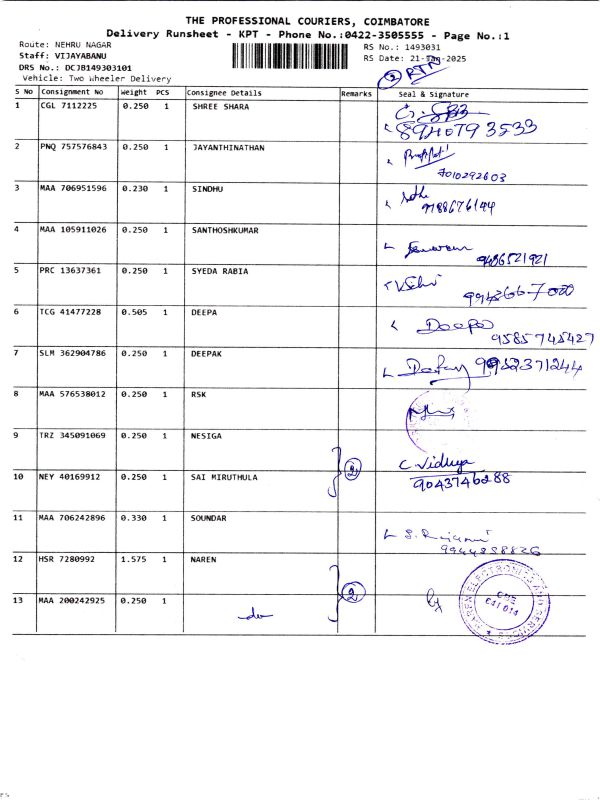 THE PROFESSIONAL COURIERS, COIMBATORE
Delivery Runsheet - KPT - Phone No.:0422-3505555 - Page No.:1
Route: NEHRU NAGAR
RS No.: 1493031
Staff: VIJAYABANU
RS Date: 21-Jan-2025
DRS No.: DCJB149303101
Vehicle: Two Wheeler Delivery
2 RTN
S No Consignment No Weight PCS Consignee Details Remarks Seal & Signature
1 CGL 7112225 0.250 1 SHREE SHARA
8940793533
2 PNQ 757576843 0.250 1 JAYANTHINATHAN
7010292603
3 MAA 706951596 0.230 1 SINDHU
9788676194
4 MAA 105911026 0.250 1 SANTHOSHKUMAR
9486521921
5 PRC 13637361 0.250 1 SYEDA RABIA
6 TCG 41477228 0.505 1 DEEPA
Deepa
9585745427
7 SLM 362904786 0.250 1 DEEPAK
9952371244
8 MAA 576538012 0.250 1 RSK
9 TRZ 345091069 0.250 1 NESIGA
2 C. Vidhya
10 NEY 40169912 0.250 1 SAI MIRUTHULA
9043746288
11 MAA 706242896 0.330 1 SOUNDAR
9944858826
12 HSR 7280992 1.575 1 NAREN
2
NAREN ELECTRONICS AND SERVICES
CBE
641 014
13 MAA 200242925 0.250 1
do